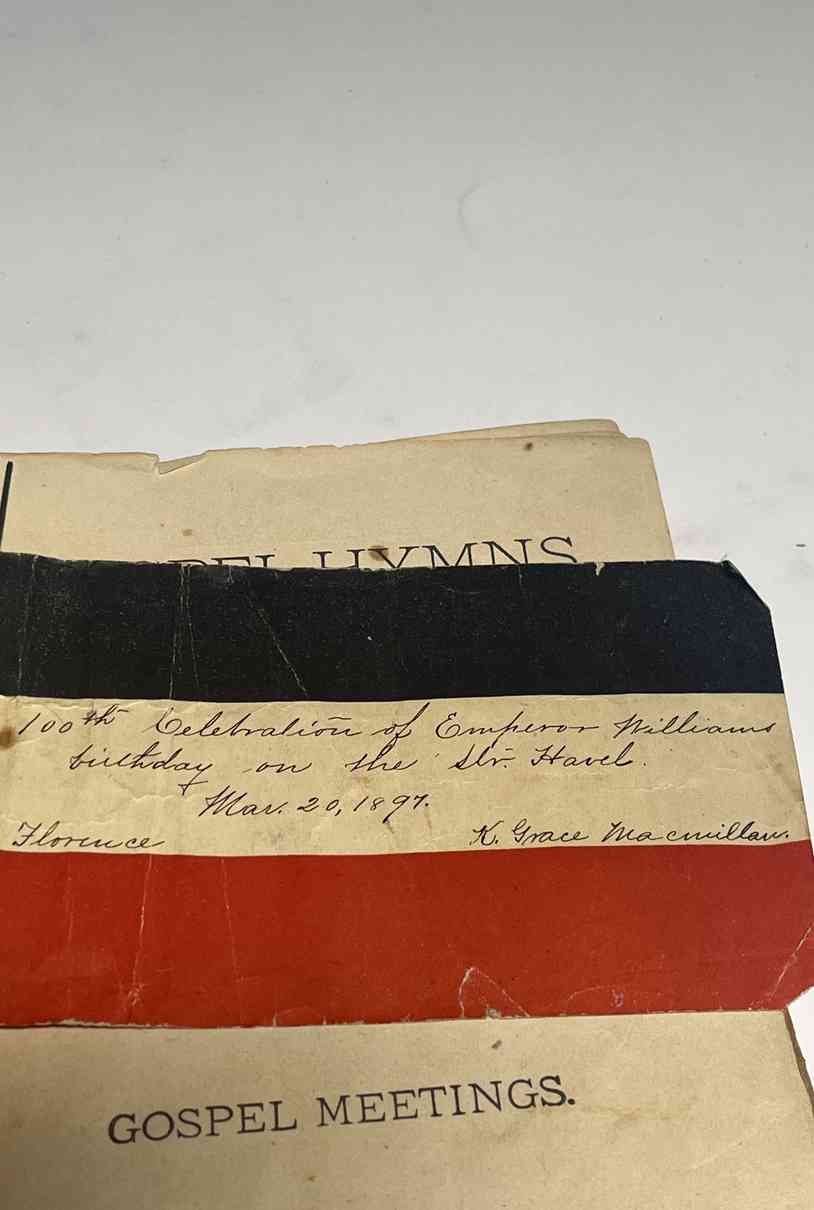 GOSPEL HYMNS
100th Celebration of Emperor Williams
birthday on the Str. Havel.
Mar. 20, 1897.
Florence K. Grace Macmillan.
GOSPEL MEETINGS.